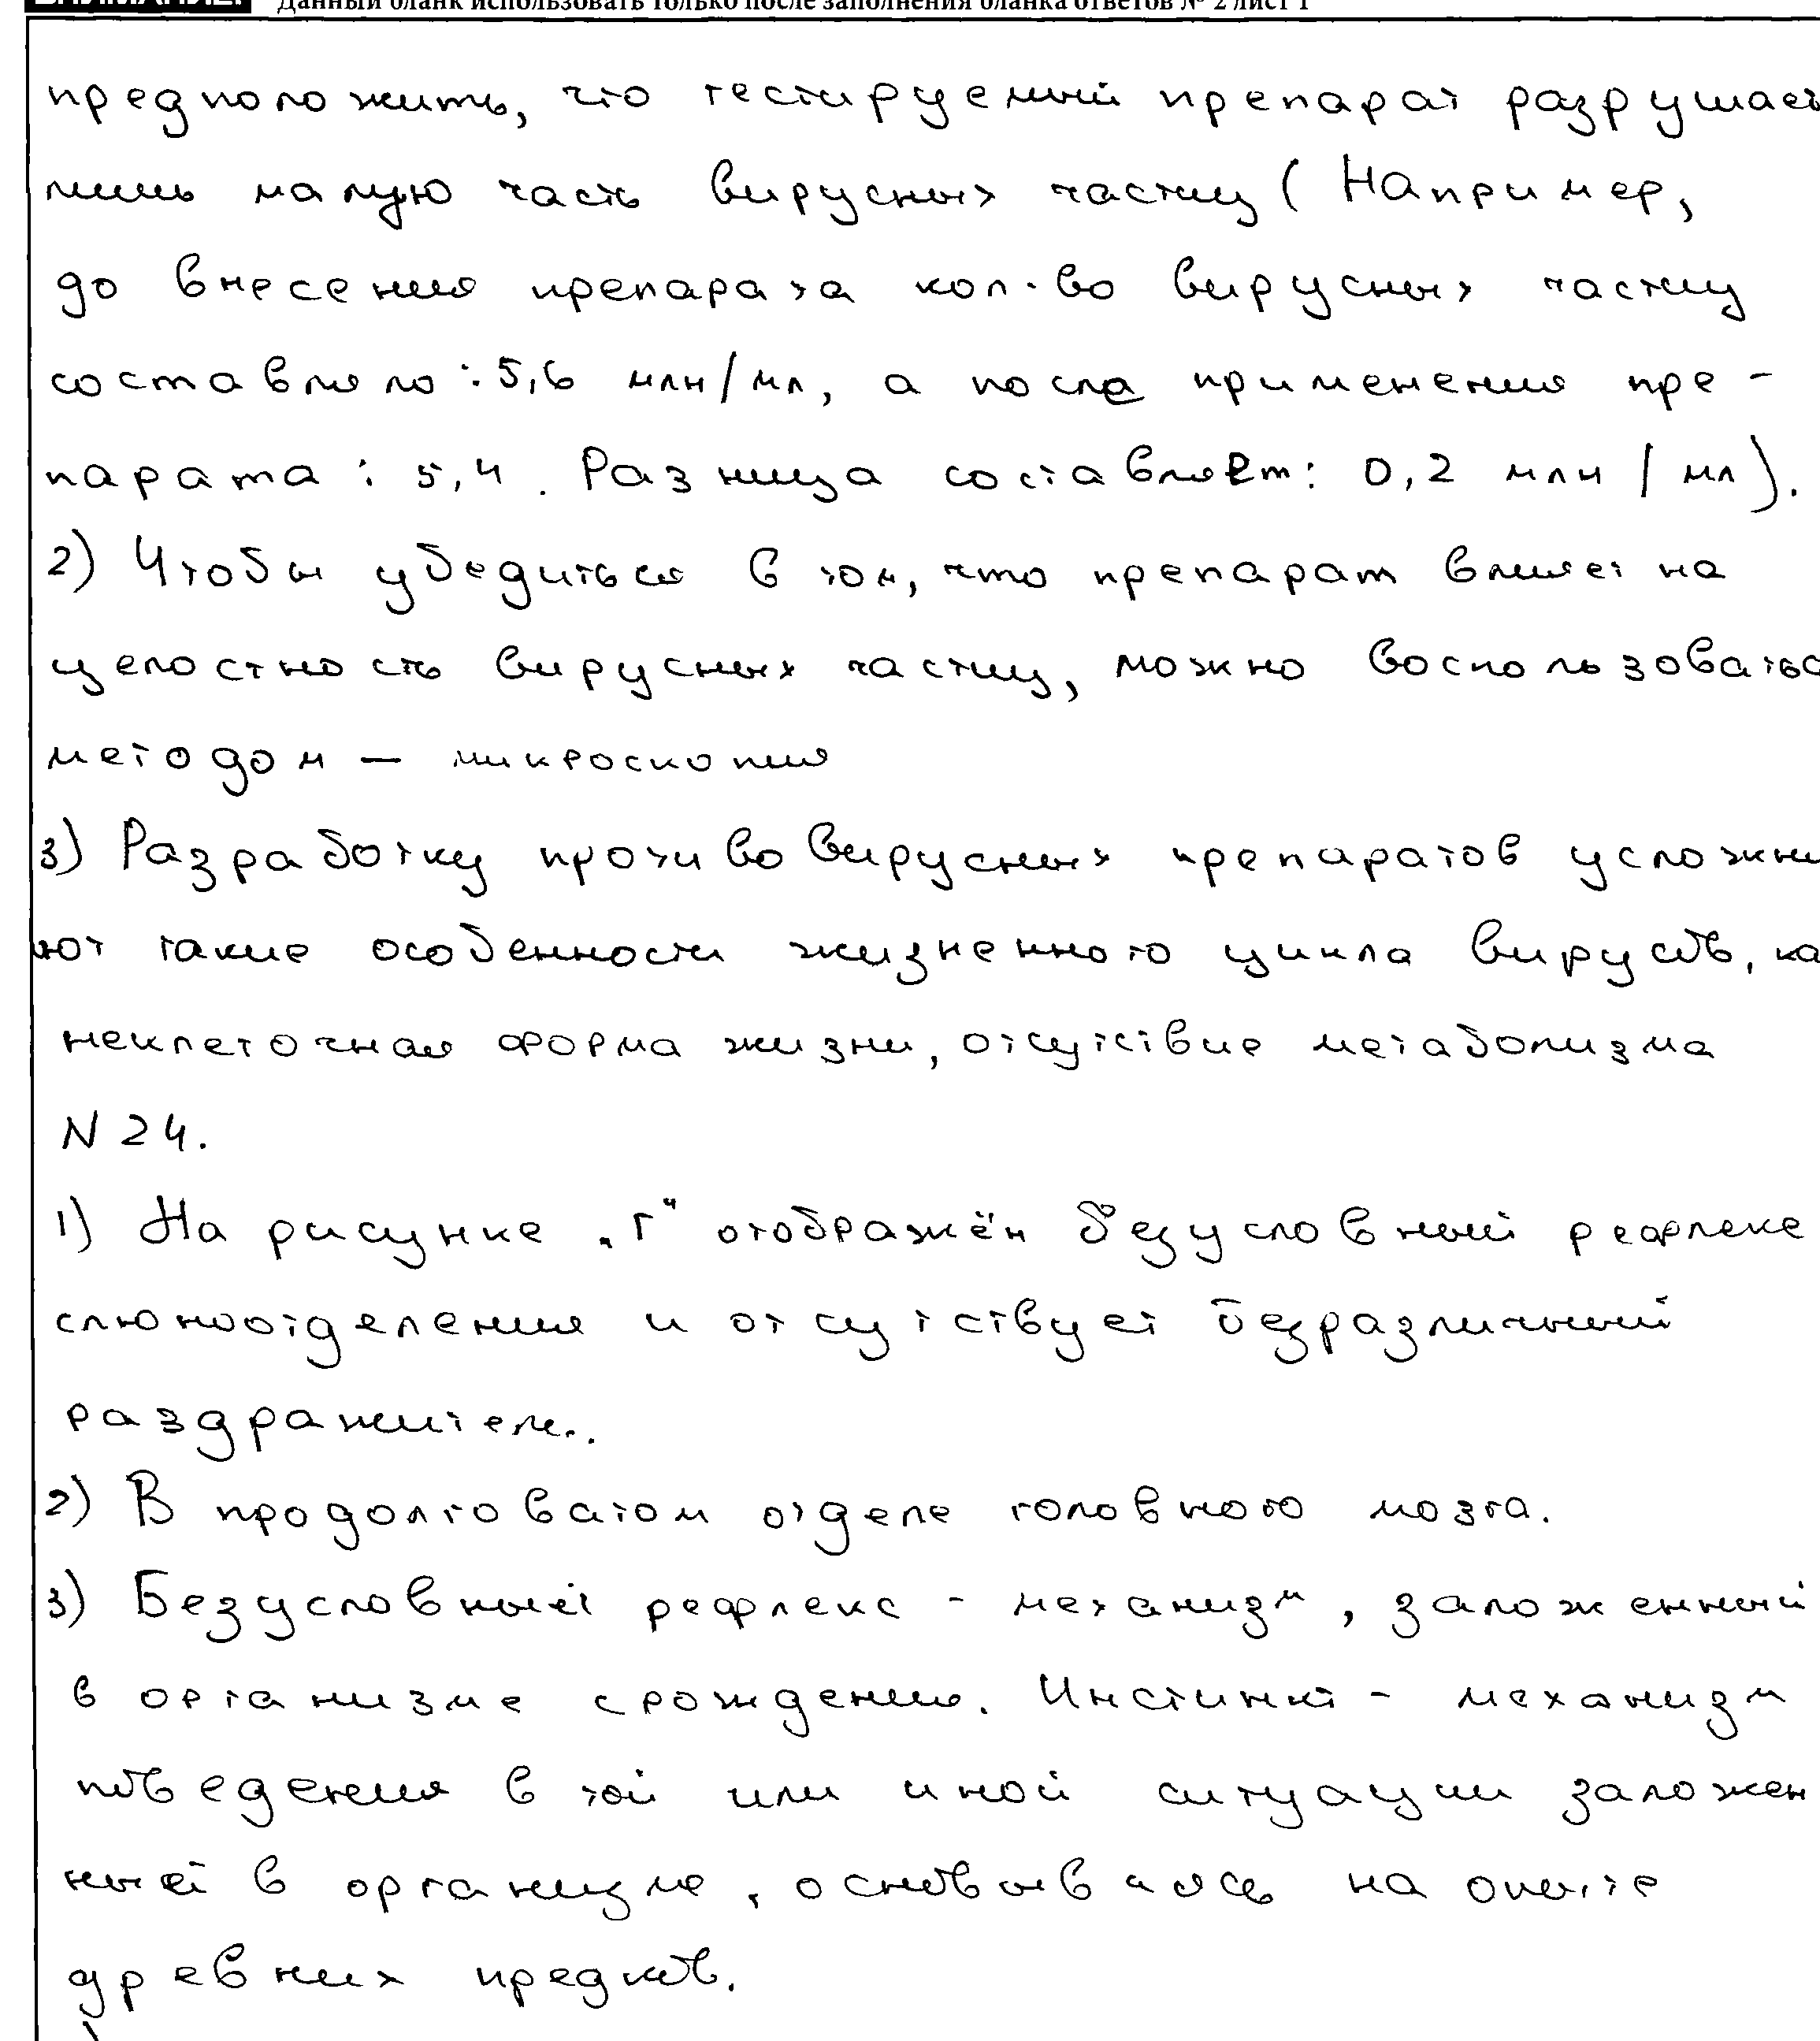 Данный бланк использовать только после заполнения бланка ответов № 2 лист 1
предположить, что тестируемый препарат разрушает
лишь малую часть вирусных частиц ( Например,
до внесения препарата кол-во вирусных частиц
составляло : 5,6 млн/мл, а после применения пре -
парата : 5,4 . Разница составляет: 0,2 млн / мл ).
2) Чтобы убедиться в том, что препарат влияет на
целостность вирусных частиц, можно воспользоватьс
методом — микроскопия
3) Разработку противовирусных препаратов усложня
ют такие особенности жизненного цикла вирусов, ка
неклеточная форма жизни, отсутствие метаболизма
N 24.
1) На рисунке „Г“ отображён безусловный рефлекс
слюноотделения и отсутствует безразличный
раздражитель.
2) В продолговатом отделе головного мозга.
3) Безусловный рефлекс - механизм, заложенный
в организме с рождения. Инстинкт - механизм
поведения в той или иной ситуации заложен
ный в организме, основываясь на опыте
древних предков.